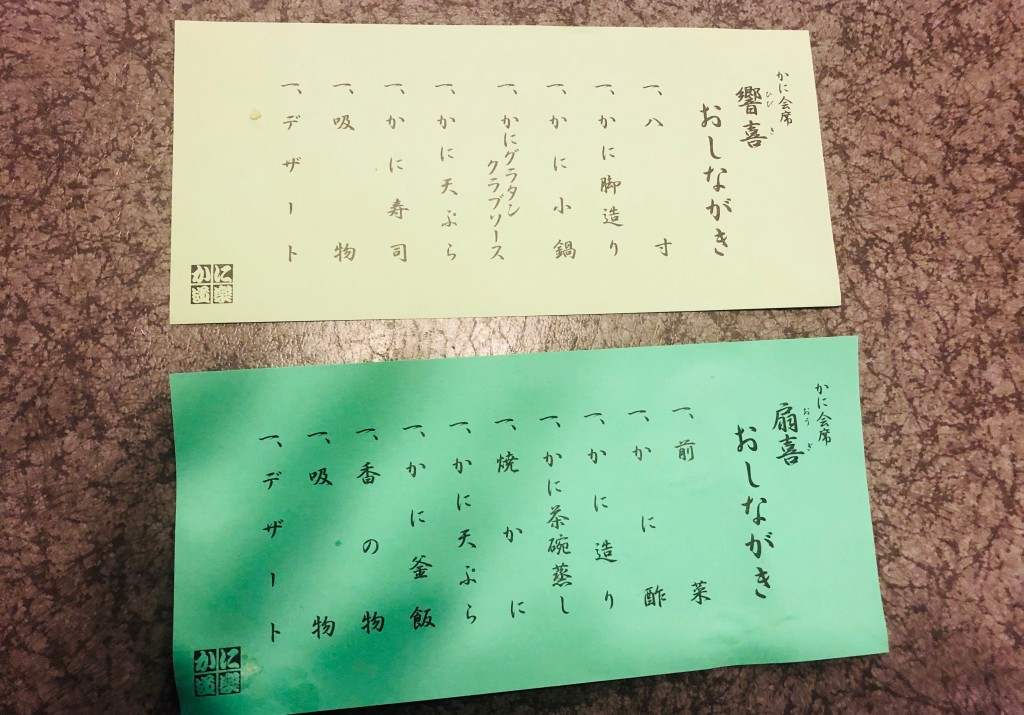 かに会席
響喜
ひびき
おしながき
一、八寸
一、かに脚造り
一、かに小鍋
一、かにグラタン
クラブソース
一、かに天ぷら
一、かに寿司
一、吸物
一、デザート
かに道楽
かに会席
扇喜
おうぎ
おしながき
一、前菜
一、かに酢
一、かに造り
一、かに茶碗蒸し
一、焼かに
一、かに天ぷら
一、かに釜飯
一、香の物
一、吸物
一、デザート
かに道楽